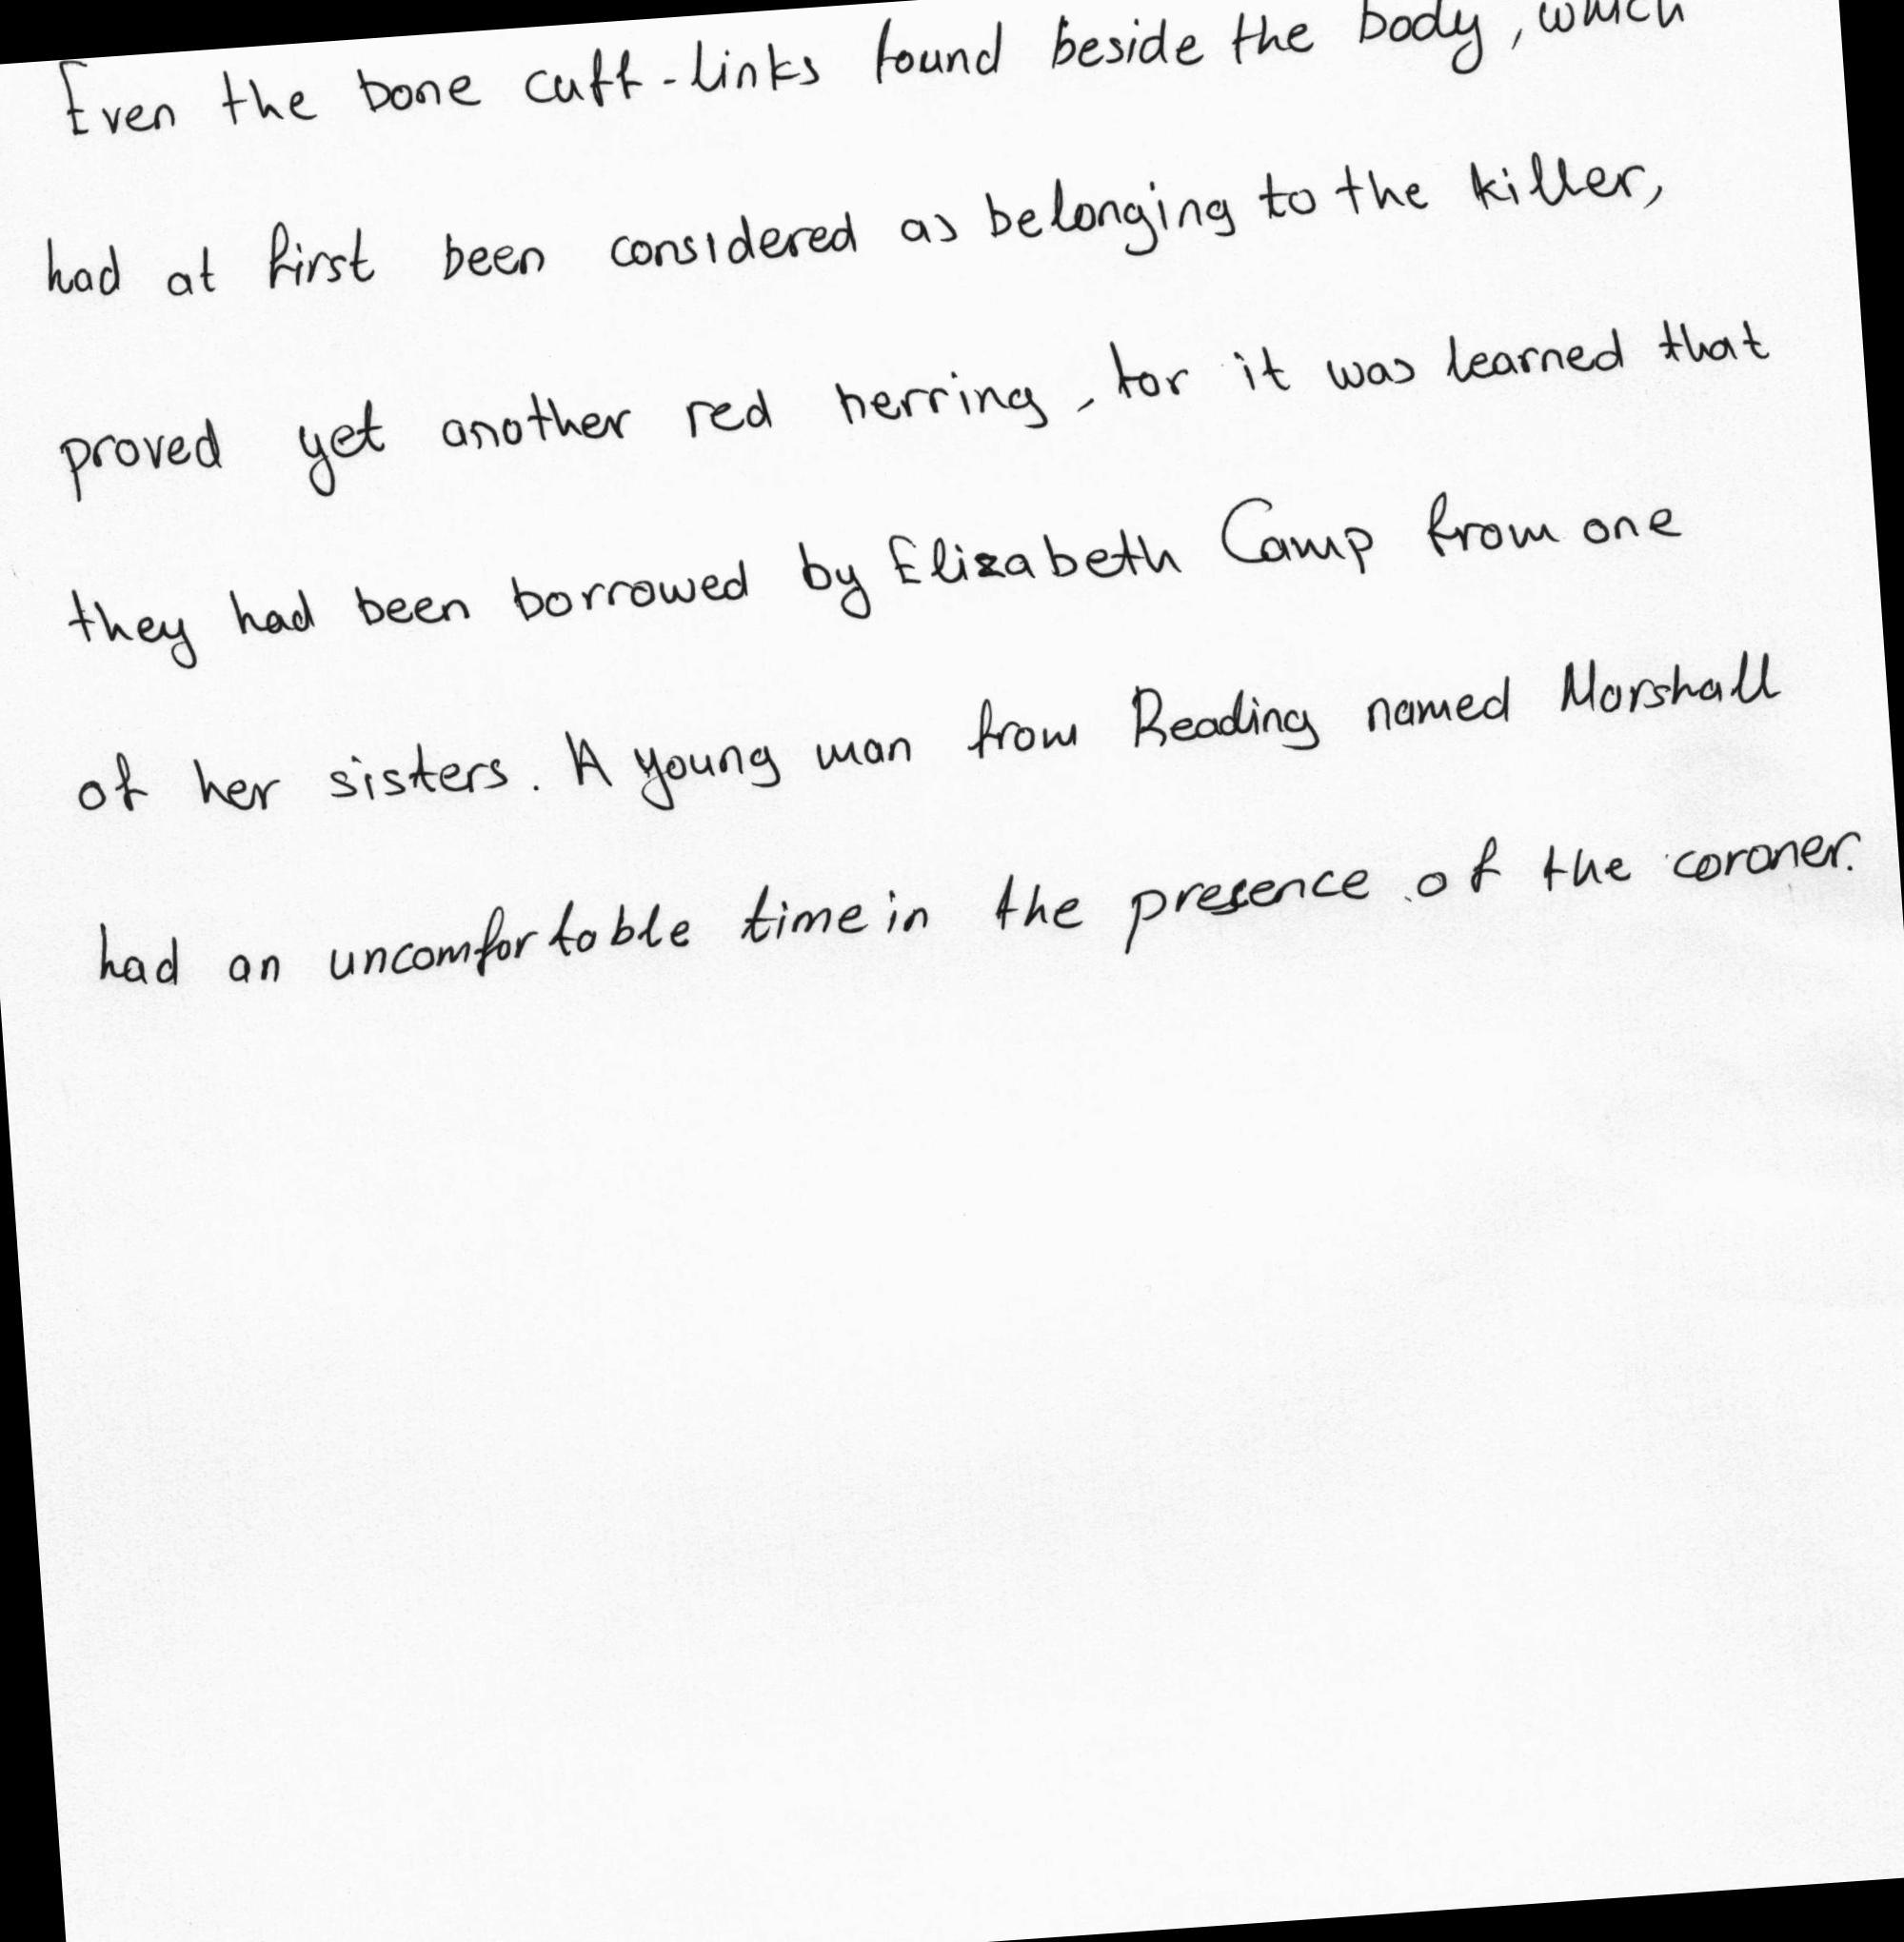 Even the bone cuff-links found beside the body, which
had at first been considered as belonging to the killer,
proved yet another red herring, for it was learned that
they had been borrowed by Elizabeth Camp from one
of her sisters. A young man from Reading named Marshall
had an uncomfortable time in the presence of the coroner.